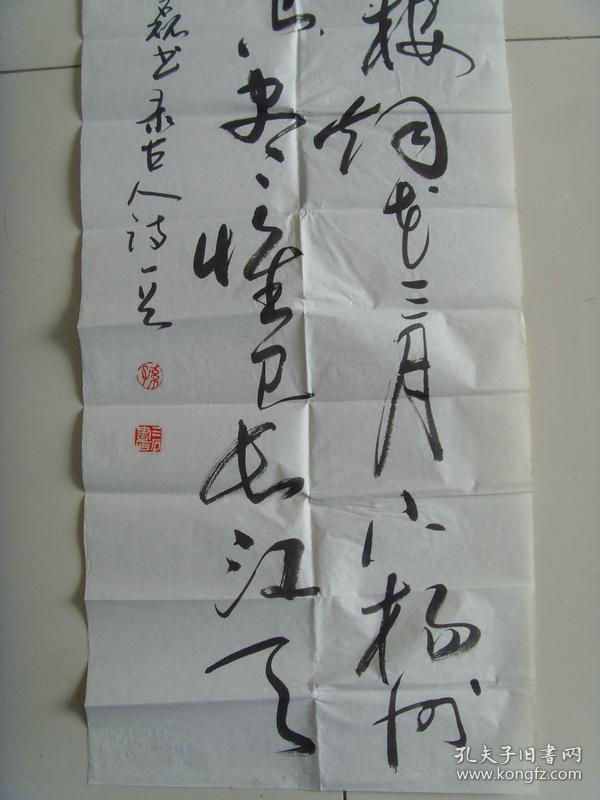 楼烟花三月下杨州
尽惟见长江天
磊书录古人诗一首
孔夫子旧书网
www.kongfz.com